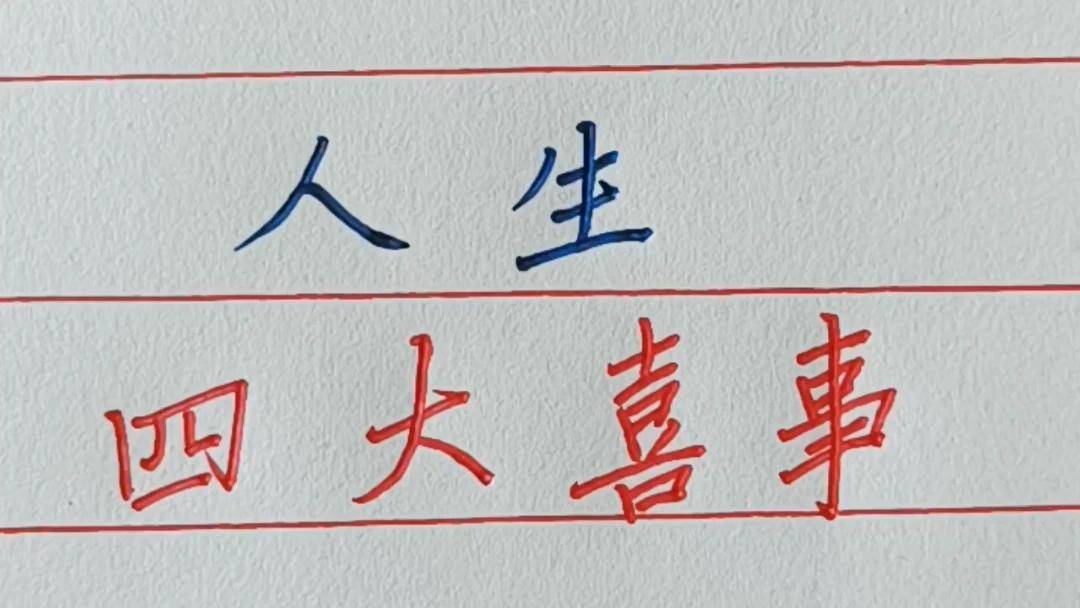 人生
四大喜事